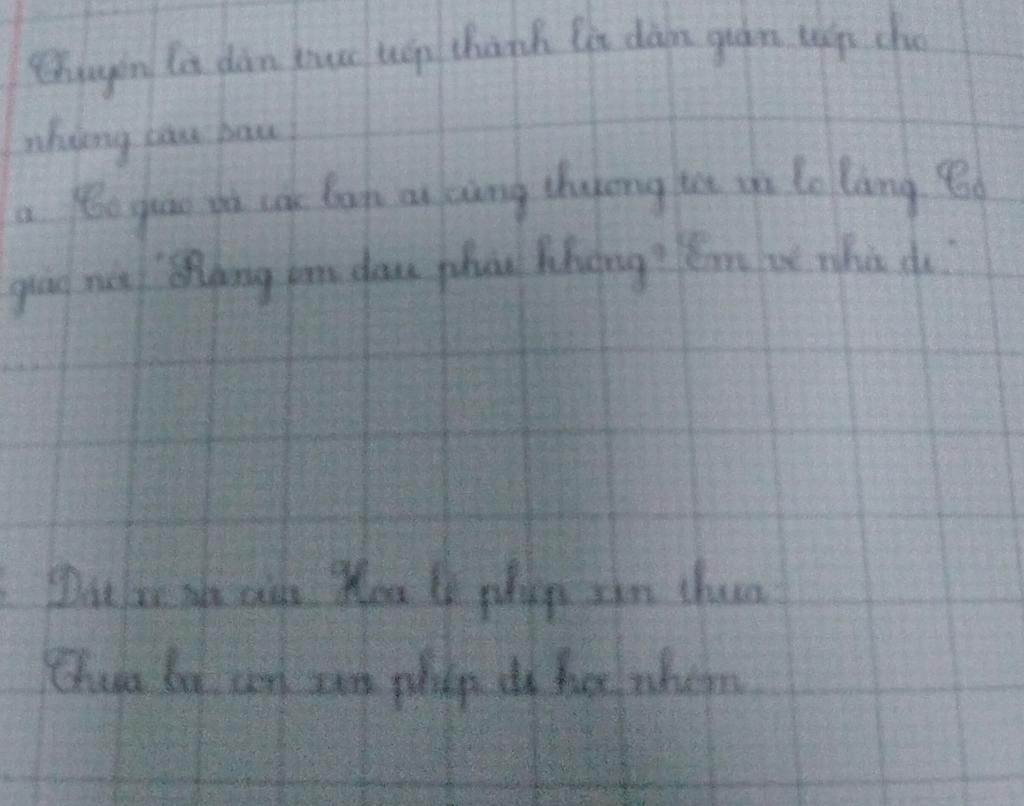 Chuyển lời dẫn trực tiếp thành lời dẫn gián tiếp cho
những câu sau:
a. Cô giáo và các bạn ai cũng thương tôi và lo lắng. Cô
giáo nói: "Răng em đau phải không? Em về nhà đi."
Dắt xe ra cửa, Hoa lễ phép xin thưa:
Thưa ba, con xin phép đi học nhóm